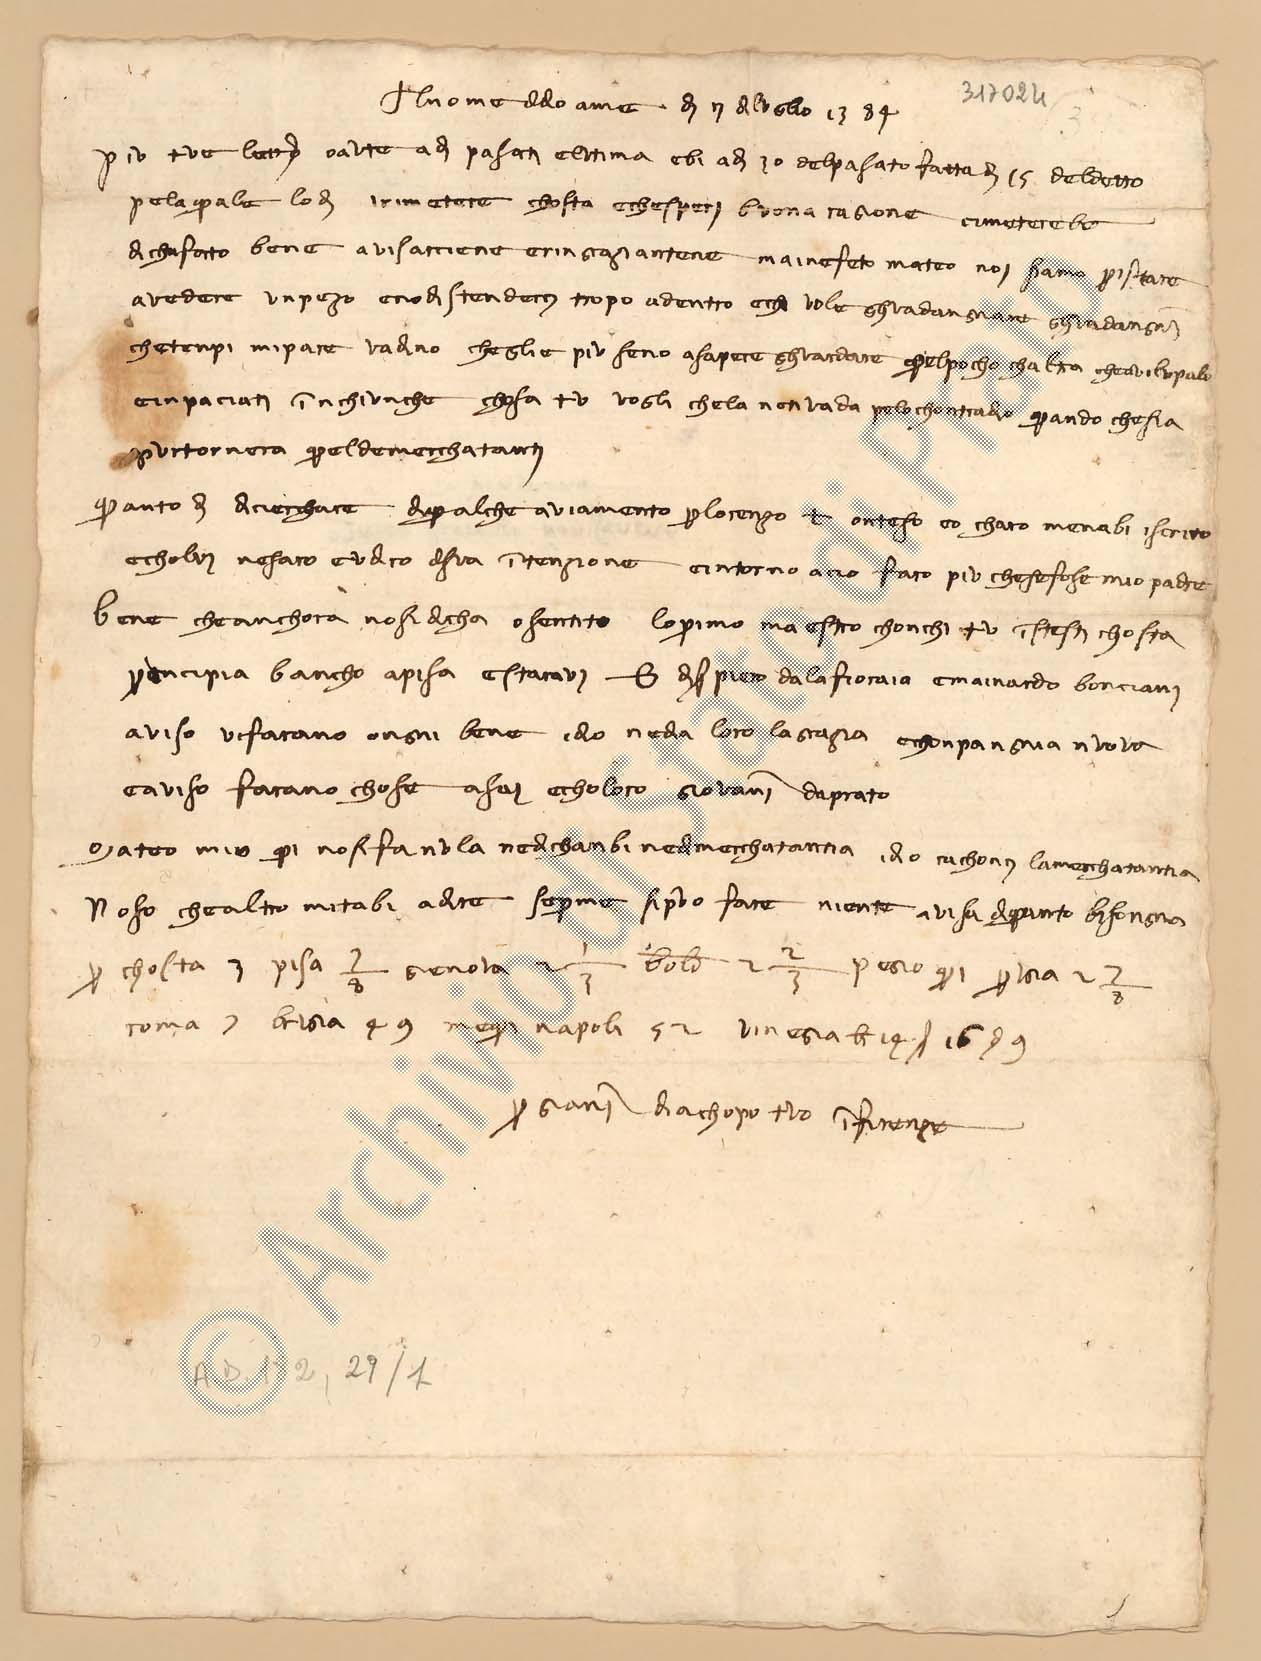 317024
3
Al nome di dio ame dì 7 di luglio 1384
Più tue lettere oavute adì pasati el utima ebi adì 30 del pasato fatta dì 15 del detto
pela quale lodì chosta e che speri buona ragione
di cha fatto bene avisaciene e ringraziantene mainefeto mateo noi siamo per istare
a vedere un pezo e no distenderci tropo adentro e chi vole ghuadangniare ghuadangni
che tenpi mi pare vadino che glie più seno a sapere ghuardare quelpocho chaltra che
e inpaciati in chiunche chosa tu vogli che la non vada pelo chontradio quando che sia
pur tornera quel de merchatanti
Quanto di di cierchare di qualche aviamento per lorenzo t' ò inteso e ò charo me n'abi iscrito
e cholui ne saro e udiro di sua intenzione e intorno a cio faro più che se fose mio padre
bene che anchora no si dicha o sentito lo primo maestro chon chi tu istesti chosta
principia bancho a pisa e staravi piero dala fioraia e mainardo bonciani
aviso vi farano ongni bene idio ne dia loro la grazia e chonpangnia nuova
e aviso farano chose asai e choloro giovani da prato
Mateo mio qui no si fa nula ne di chanbi ne di merchatantia idio rachonci la merchatantia
No so che altro mi t'abi a dire se per me si può fare niente avisa di quanto bisongnia
per chosta 3 pisa 7/8 gienova 2 1/3 bolo 2 2/3 pegio qui perugia 2 7/8
roma 7 brugia 49 napoli 52 vinegia 14 16 9
per giani di iachopo tuo in firenze
A.D. 1112, 29/1
1
© Archivio di Stato di Prato